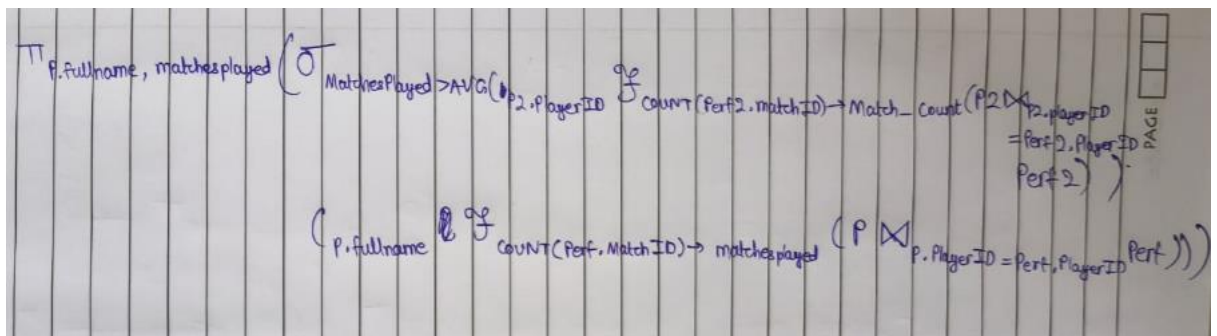 π P.fullname, matchesplayed ( σ MatchesPlayed > AVG( P2.PlayerID ℱ COUNT(Perf2.matchID) → Match_Count (P2 ⋈ P2.playerID
= Perf2.PlayerID
Perf2) )
( P.fullname ℱ COUNT(Perf.MatchID) → matchesplayed ( P ⋈ P.PlayerID = Perf.PlayerID Perf )))
PAGE